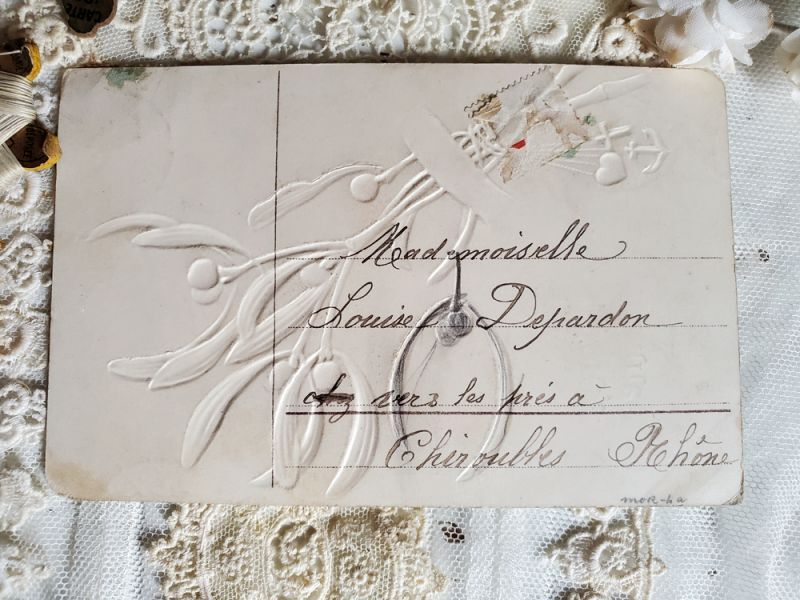 Mademoiselle
Louise Depardon
vers les prés à
Chiroubles Rhône
mor-ha